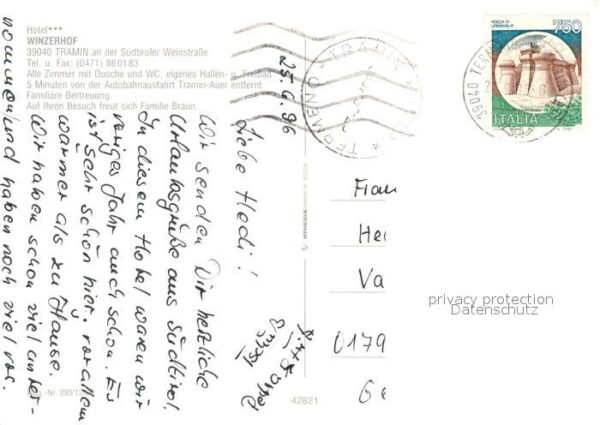 Hotel***
WINZERHOF
39040 TRAMIN an der Südtiroler Weinstraße
Tel. u. Fax: (0471) 860183
Alle Zimmer mit Dusche und WC, eigenes Hallen- u. Freibad
5 Minuten von der Autobahnausfahrt Tramin-Auer entfernt.
Familiäre Bertreuung.
Auf Ihren Besuch freut sich Familie Braun.
25.6.96
Liebe Hedi!
Wir senden Dir herzliche
Urlaubsgrüße aus Südtirol.
In diesem Hotel waren wir
voriges Jahr auch schon. Es
ist sehr schön hier, vor allem
wärmer als zu Hause.
Wir haben schon viel unter-
nommen und haben noch viel vor.
Tschüß
Petra
42821
ROCCA DI
URBISAGLIA
750
ITALIA
TERMENO - TRAMIN
39040
Frau
He
Va
0179
Ge
privacy protection
Datenschutz